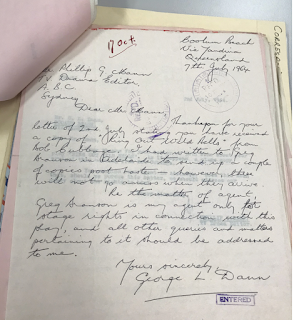 7 Oct.
Coolum Beach
Via Yandina
Queensland
7th July 1964
Mr Phillip G Mann
Drama Editor
A.B.C.
Sydney
Dear Mr Mann,
Thank you for your
letter of 2nd July stating you have received
a copy of "Ring Out Wild Bells" from
Bob Cubbage. I had written to Greg
Branson in Adelaide to send up a couple
of copies post haste — however, these
will not go amiss when they arrive.
Re the matter of agent
Greg Branson is my agent only for
stage rights in connection with this
play, and all other queries and matters
pertaining to it should be addressed
to me.
Yours sincerely
George L Dann
ENTERED